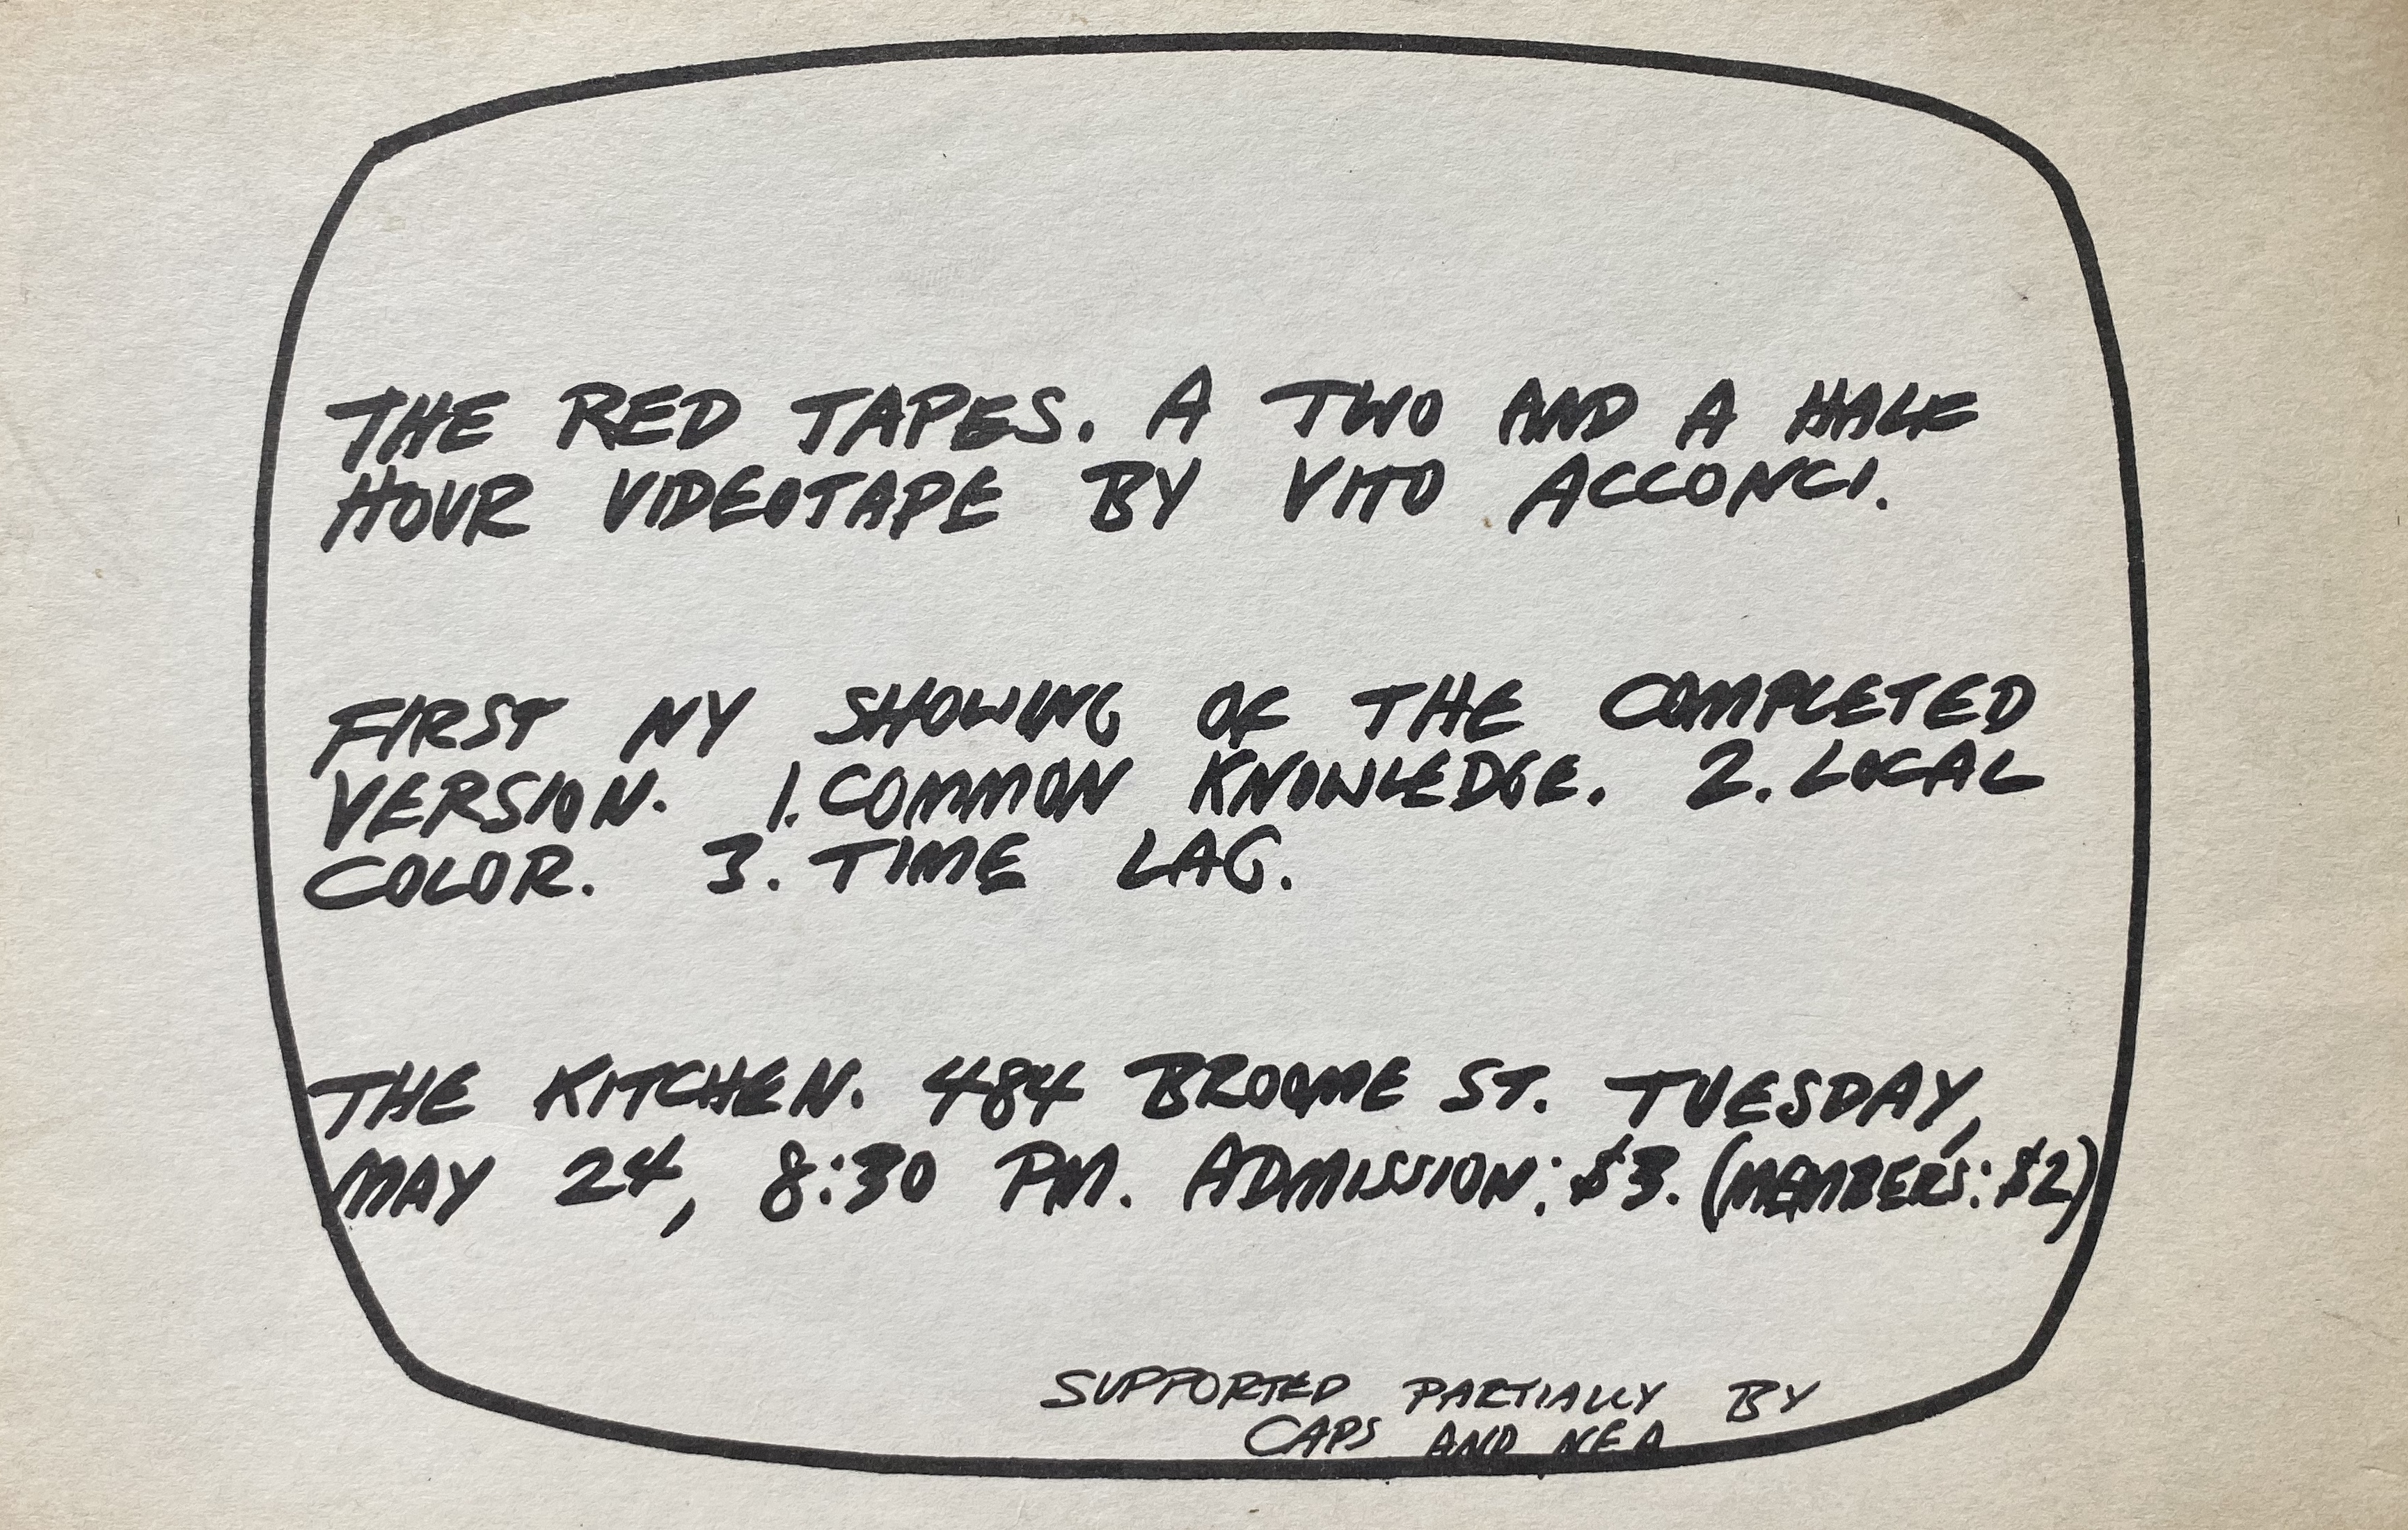 THE RED TAPES. A TWO AND A HALF
HOUR VIDEOTAPE BY VITO ACCONCI.
FIRST NY SHOWING OF THE COMPLETED
VERSION. 1. COMMON KNOWLEDGE. 2. LOCAL
COLOR. 3. TIME LAG.
THE KITCHEN. 484 BROOME ST. TUESDAY,
MAY 24, 8:30 PM. ADMISSION: $3. (MEMBERS: $2)
SUPPORTED PARTIALLY BY
CAPS AND NEA